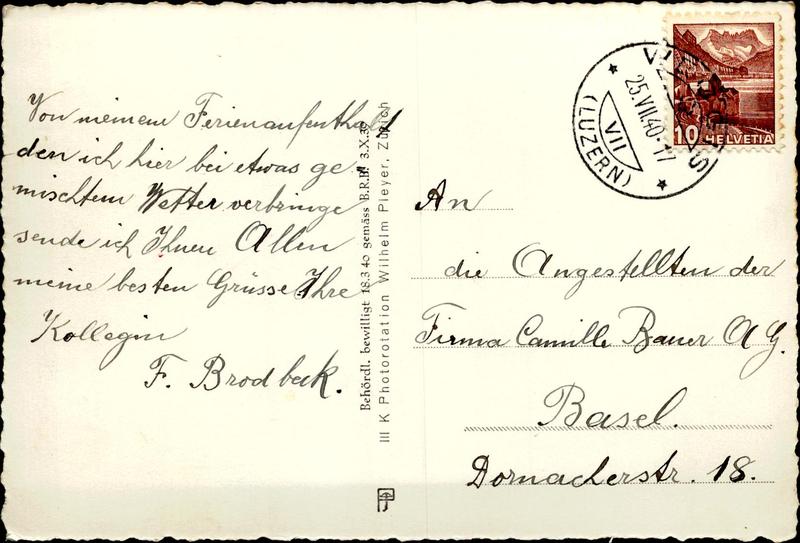 Von meinem Ferienaufenthalt
den ich hier bei etwas ge
mischtem Wetter verbringe
sende ich Ihnen Allen
meine besten Grüsse Ihre
Kollegin
F. Brodbeck.
Behördl. bewilligt 18.3.40 gemäss B.R.B. 3.X.39
III K Photorotation Wilhelm Pleyer, Zürich
25.VII.40-17
VII
(LUZERN)
10 HELVETIA
An
die Angestellten der
Firma Camille Bauer A G.
Basel.
Dornacherstr. 18.